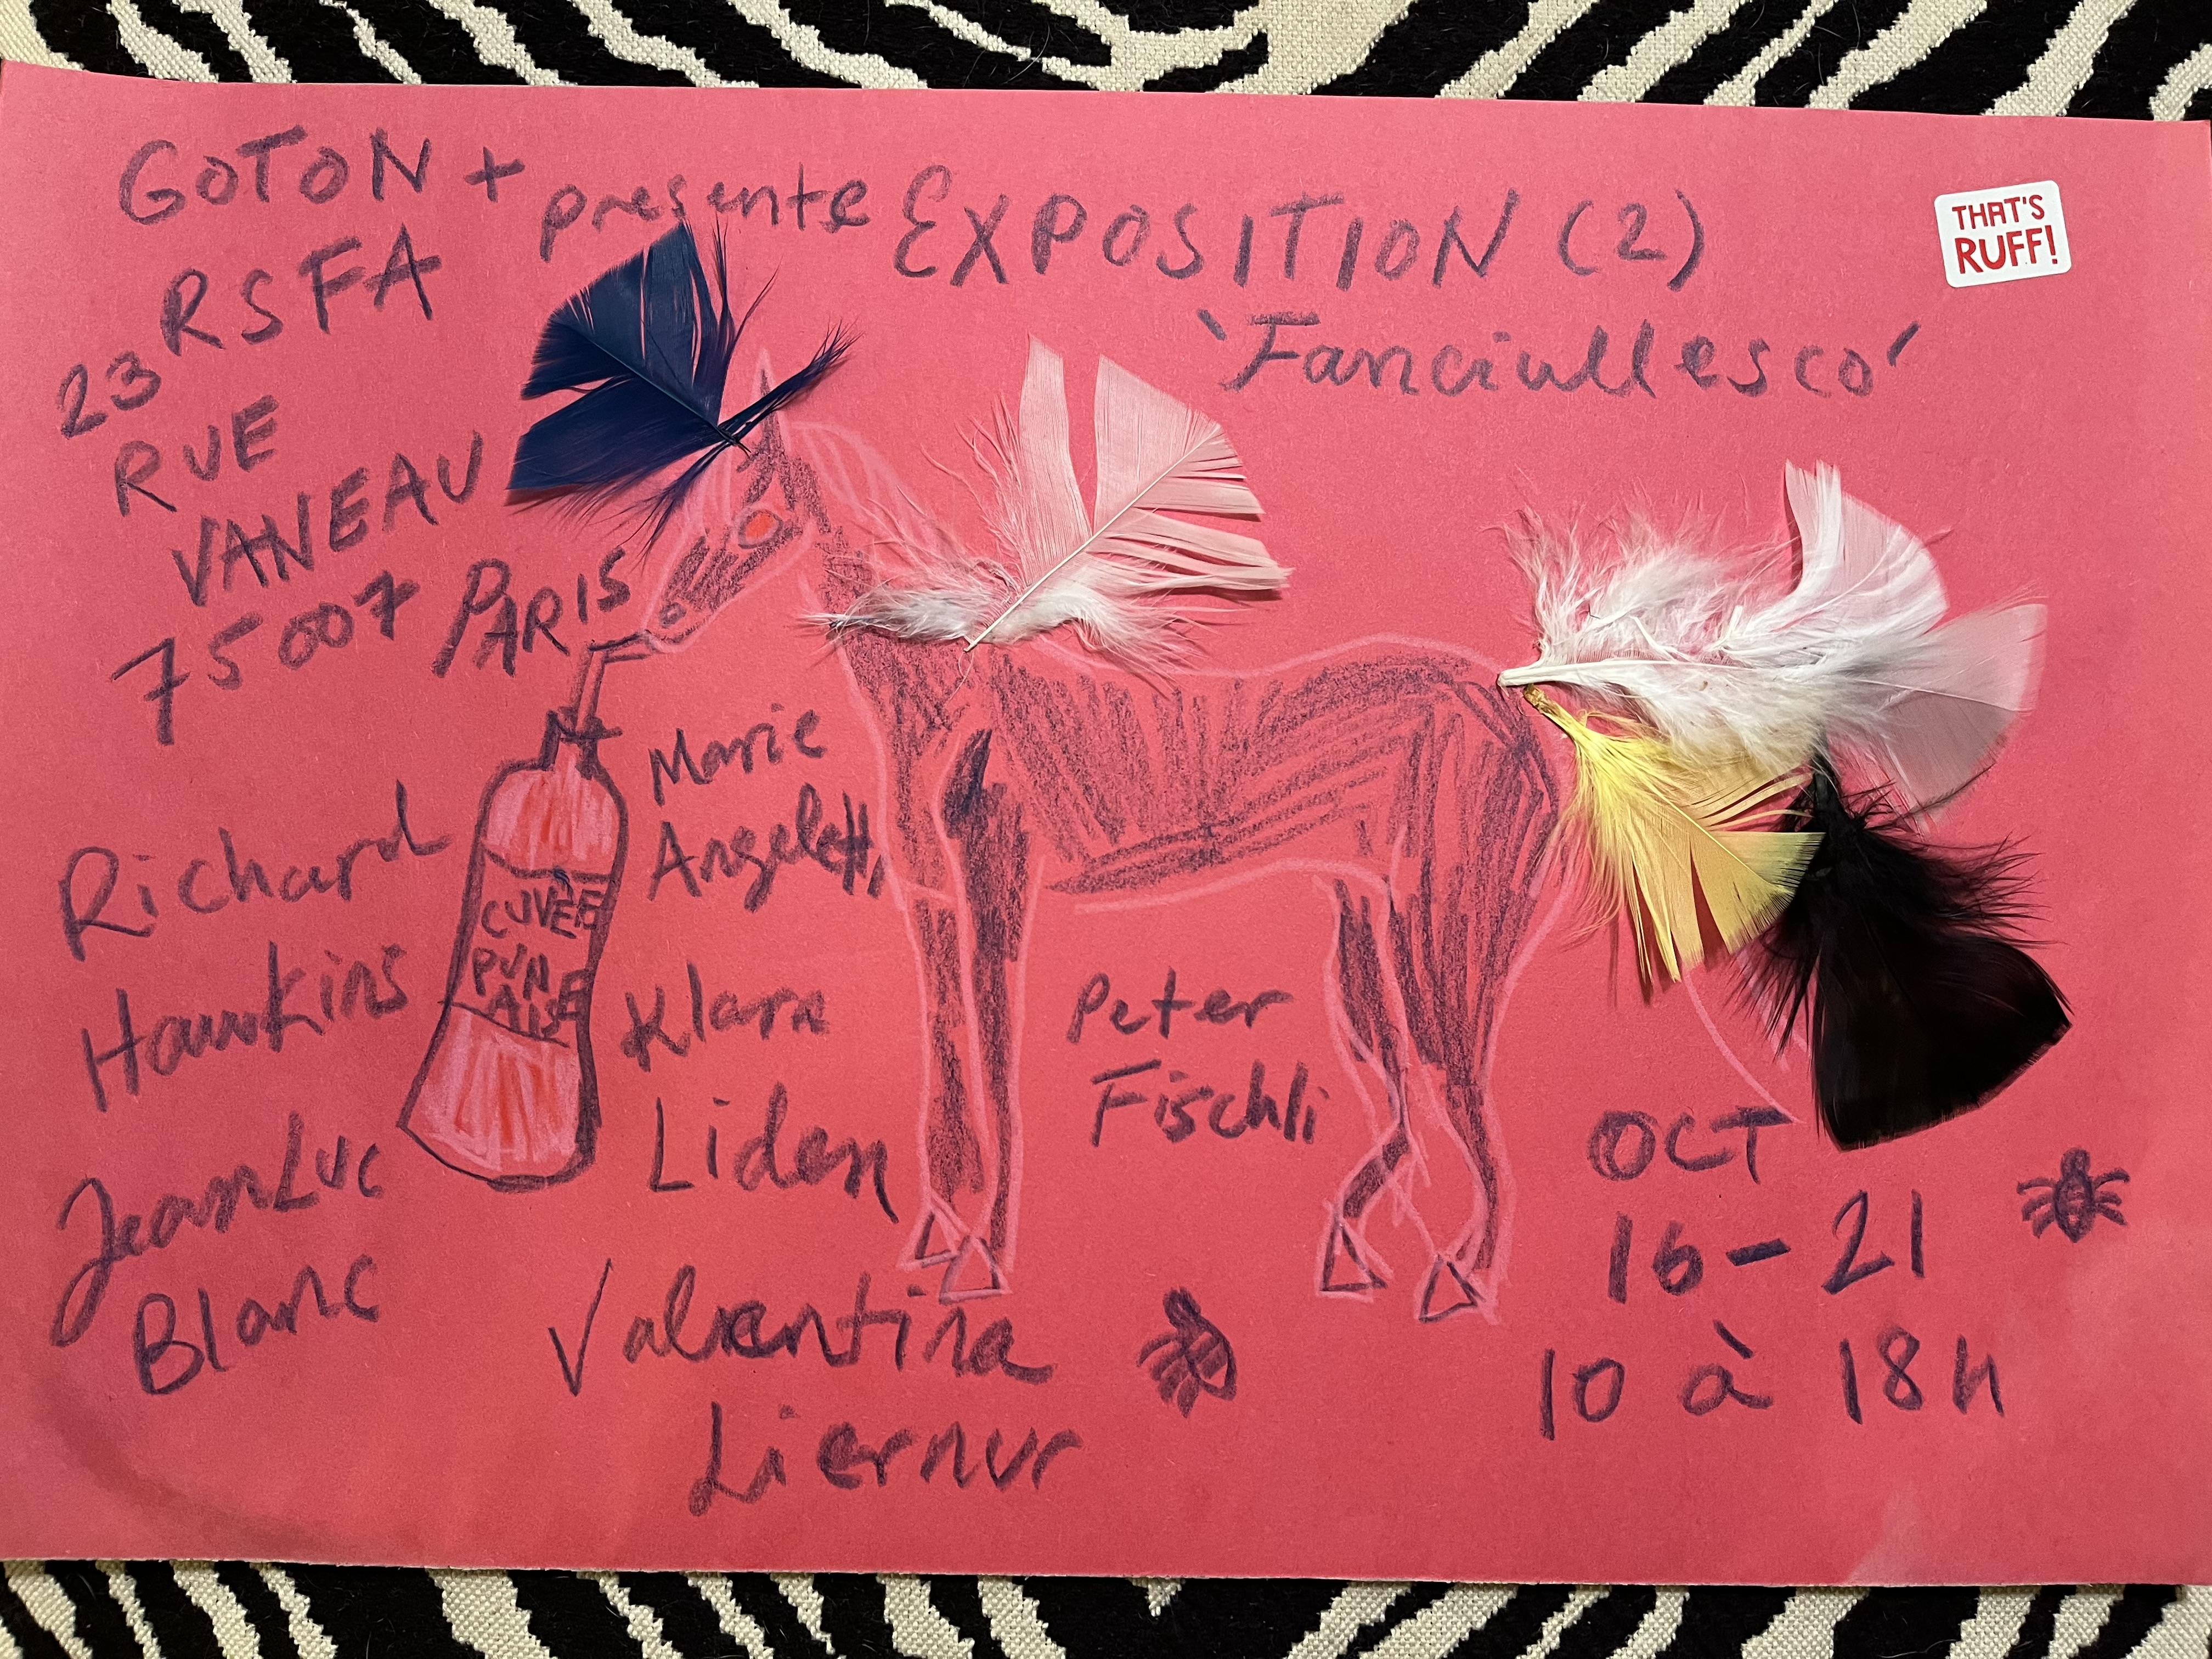 GOTON + presente EXPOSITION (2)
RSFA
'Fanciullesco'
THAT'S
RUFF!
23
RUE
VANEAU
75007 PARIS
Richard
Hawkins
Jean Luc
Blanc
CUVEE
PUN
AISE
Marie
Angeletti
Klara
Liden
Peter
Fischli
Valentina
Liernur
OCT
16-21
10 à 18h